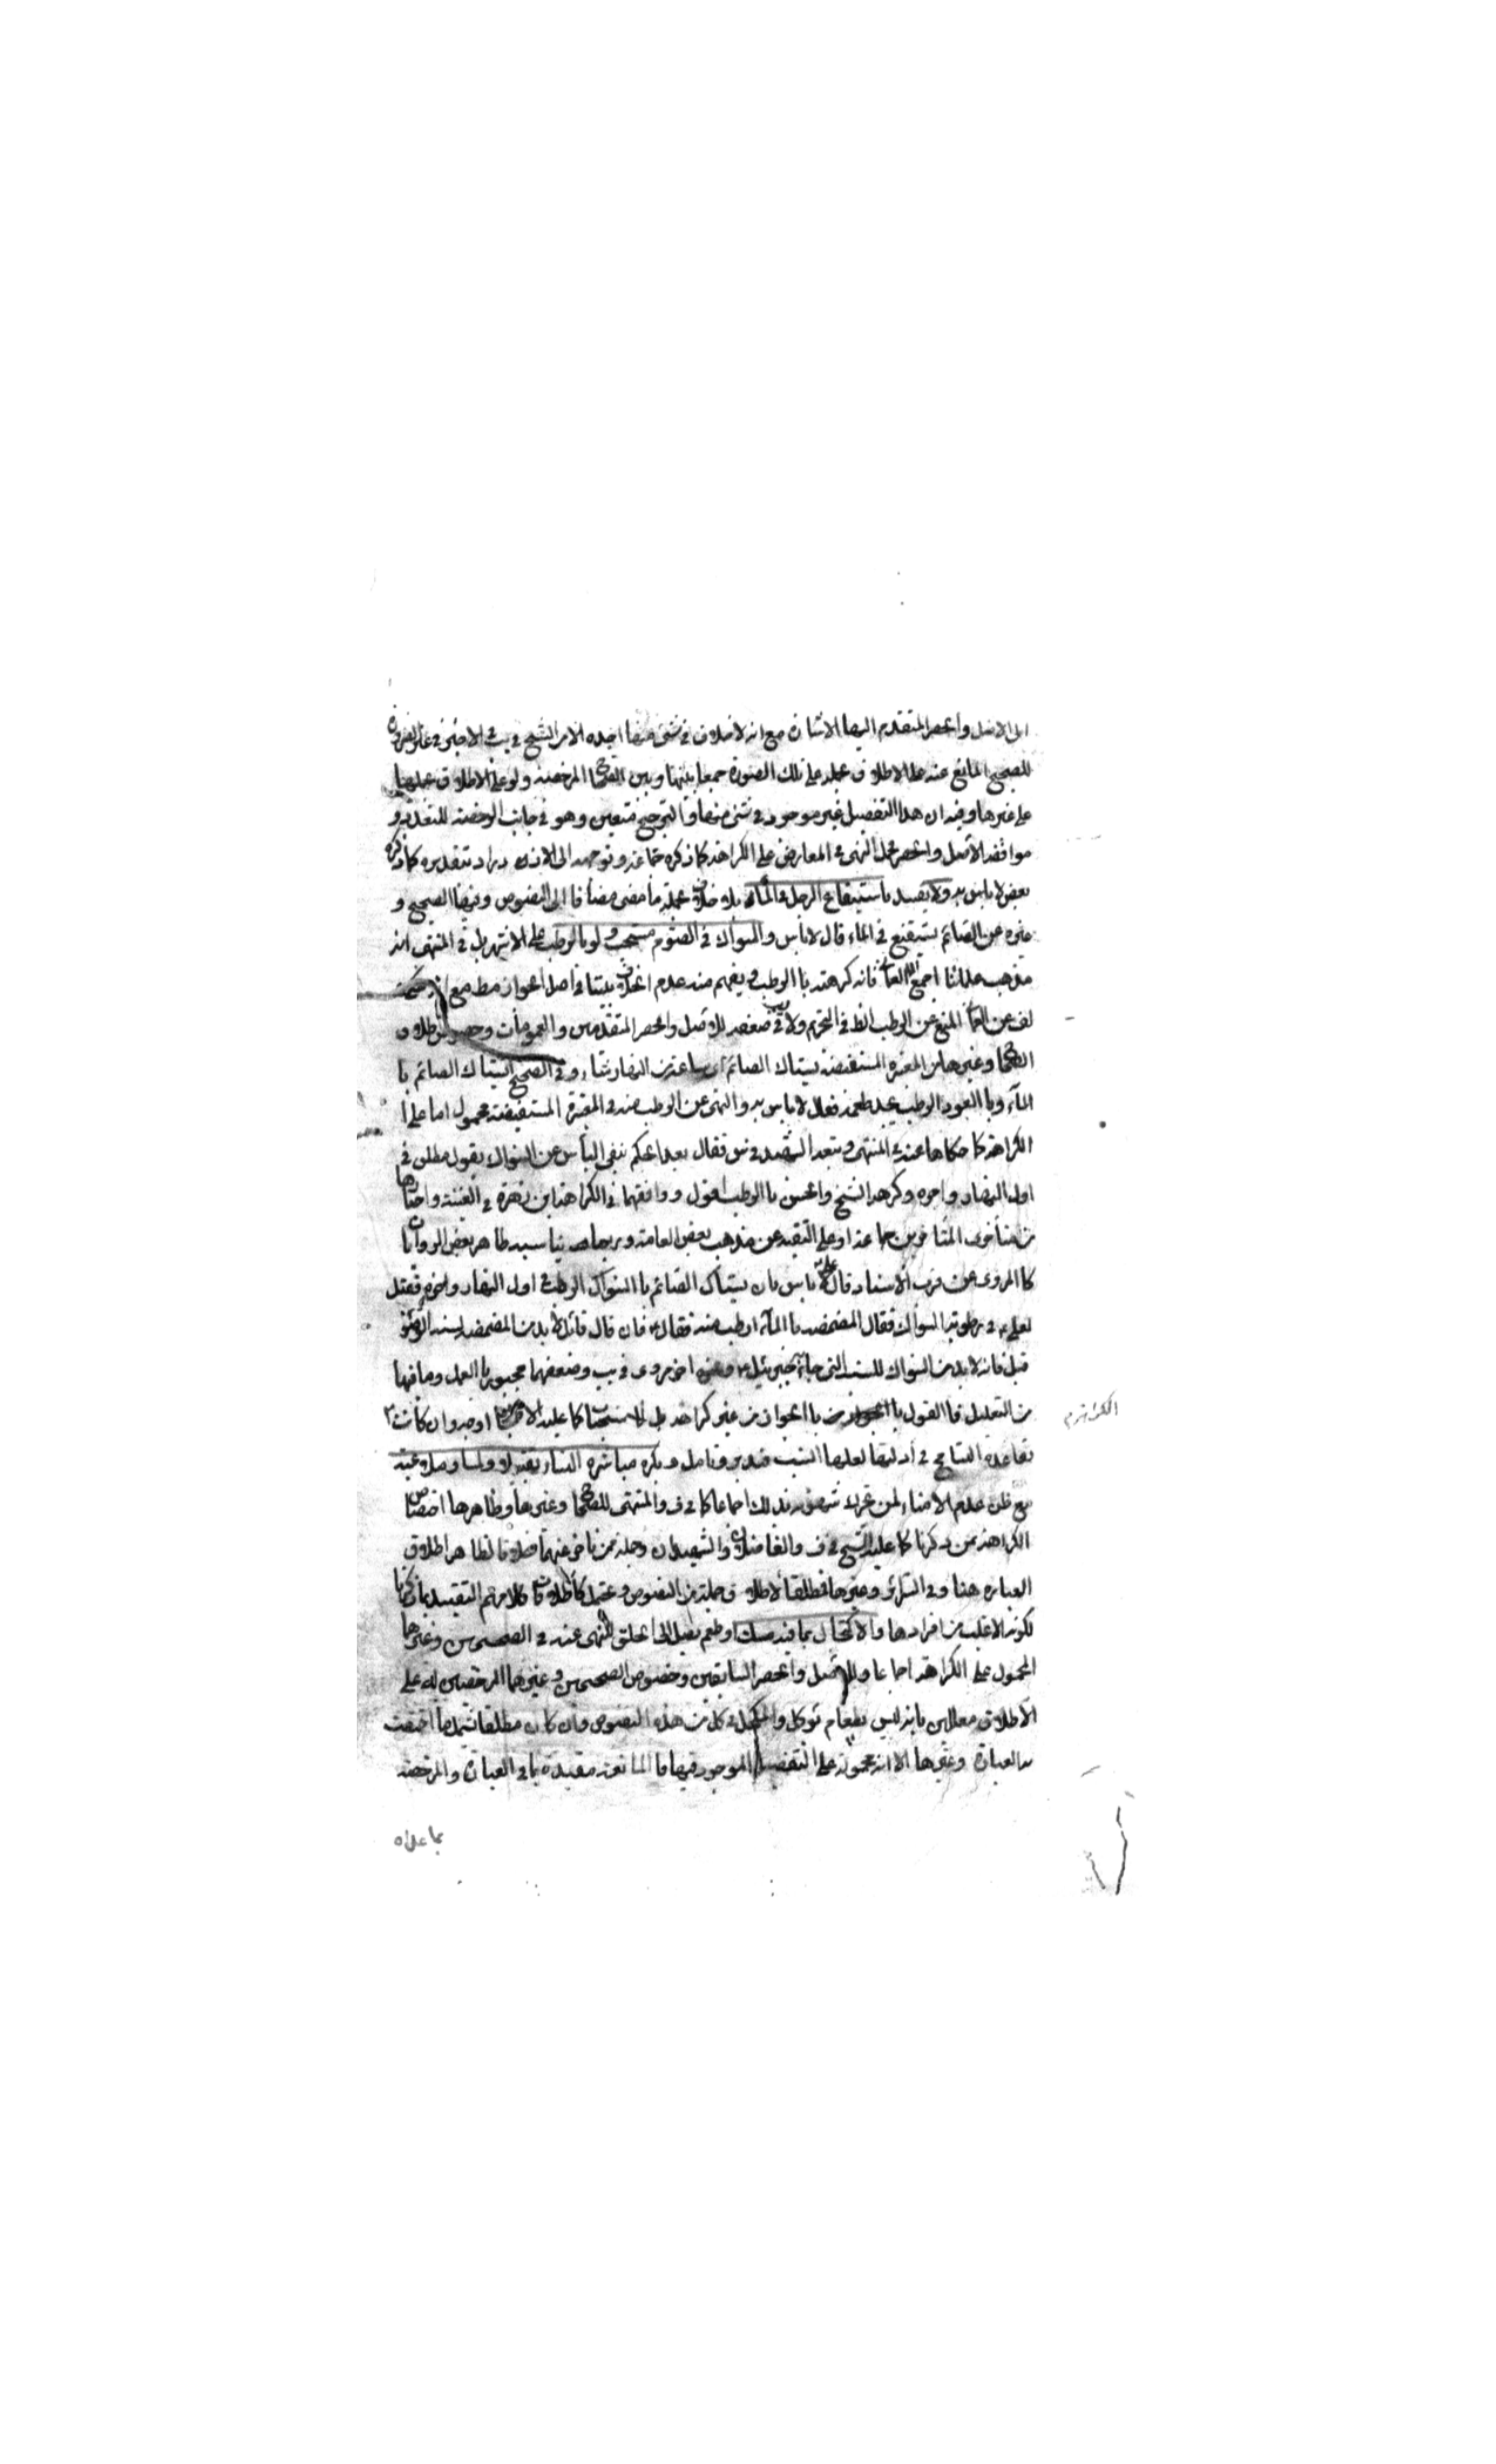 الى الاصل والحصر المتقدم اليهما الاشارة مع انه لا خلاف في شئ منها اجده الا من الشيخ في يب في الاخير في غير الضرورة
للصحيح المانع عنه على الاطلاق بحمله على تلك الصورة جمعا بينها وبين الصحاح المرخصة ولو على الاطلاق بحملها
على غيرها وفيه ان هذا التفصيل غير موجود في شئ منها والترجيح متعين وهو في جانب الرخصة للتعدد و
موافقة الاصل والحصر فيحمل النهي في المعارض على الكراهة كما ذكره جماعة وتوجهه الى الازدراد بتقديره كما ذكره
بعض لا باس به ولا يفسد باستنقاع الرجل في الماء بلا خلاف عملا بما مضى مضافا الى النصوص ومنها الصحيح و
غيره عن الصائم يستنقع في الماء قال لا باس والسواك في الصوم مستحب ولو بالرطب على الاشهر بل في المنتهى انه
مذهب علمائنا اجمع الا العماني فانه كرهه بالرطب ويفهم منه عدم الخلاف بيننا في اصل الجواز مط مع انه حكى
لف عن العماني المنع عن الرطب الظ في التحريم ولا ريب في ضعفه للاصل والحصر المتقدمين والعمومات وخصوص اطلاق
الصحاح وغيرها من المعتبرة المستفيضة يستاك الصائم اي ساعة من النهار شاء وفي الصحيح ايستاك الصائم با
الماء وبالعود الرطب يجد طعمه فقال لا باس به والنهي عن الرطب منه في المعتبرة المستفيضة محمول اما على ا
الكراهة كما حكاها عنه في المنتهى وتبعه الشهيد في س فقال بعد الحكم بنفي البأس عن السواك بقول مطلق في
اول النهار واخره وكرهه الشيخ والحسن بالرطب اقول ووافقهما في الكراهة ابن زهرة في الغنية واختارها
من متأخري المتاخرين جماعة او على التقية عن مذهب بعض العامة وربما يناسبه ظاهر بعض الروايات
كالمروي عن قرب الاسناد قال علي ع لا باس بان يستاك الصائم بالسواك الرطب في اول النهار واخره فقيل
لعلي ع في رطوبة السواك فقال المضمضة بالماء ارطب منه فقال ع فان قال قائل لا بد من المضمضة لسنة الوضوء
قيل فانه لا بد من السواك للسنة التي جاء بها جبرئيل ع ونحوه اخر مروي في يب وضعفهما مجبور بالعمل وما فيها
من التعليل فالقول بالجواز من غير كراهة بل الاستحباب كما عليه الاكثر اوجه وان كانت
بقاعدة التسامح في ادلتها لعلها انسب فتدبر وتامل ويكره مباشرة النساء تقبيلا ولمسا وملاعبة
مع ظن عدم الامناء لمن تحرك شهوته بذلك اجماعا كما في ف والمنتهى للصحاح وغيرها وظاهرها اختصاص
الكراهة بمن ذكرنا كما عليه الشيخ في ف والفاضلان والشهيدان وجملة ممن تاخر عنهما خلافا لظاهر اطلاق
العبارة هنا وفي السرائر وغيرها فمطلقا لاطلاق جملة من النصوص ويحتمل كاطلاقات كلامهم التقييد بما ذكرنا
لكونه الاغلب من افرادها والاكتحال بما فيه مسك او طعم يصل الى الحلق للنهي عنه في الصحيحين وغيرهما
المحمول على الكراهة اجماعا وللاصل والحصر السابقين وخصوص الصحيحين وغيرهما المرخصين له على
الاطلاق معللين بانه ليس بطعام يؤكل والكحل في كل من هذه النصوص وان كان مطلقا يشمل ما اختصت
به العبارة وغيرها الا انه محمول على التفصيل الموجود فيها فالمانعة مقيدة بما في العبارة والمرخصة
بما عداه